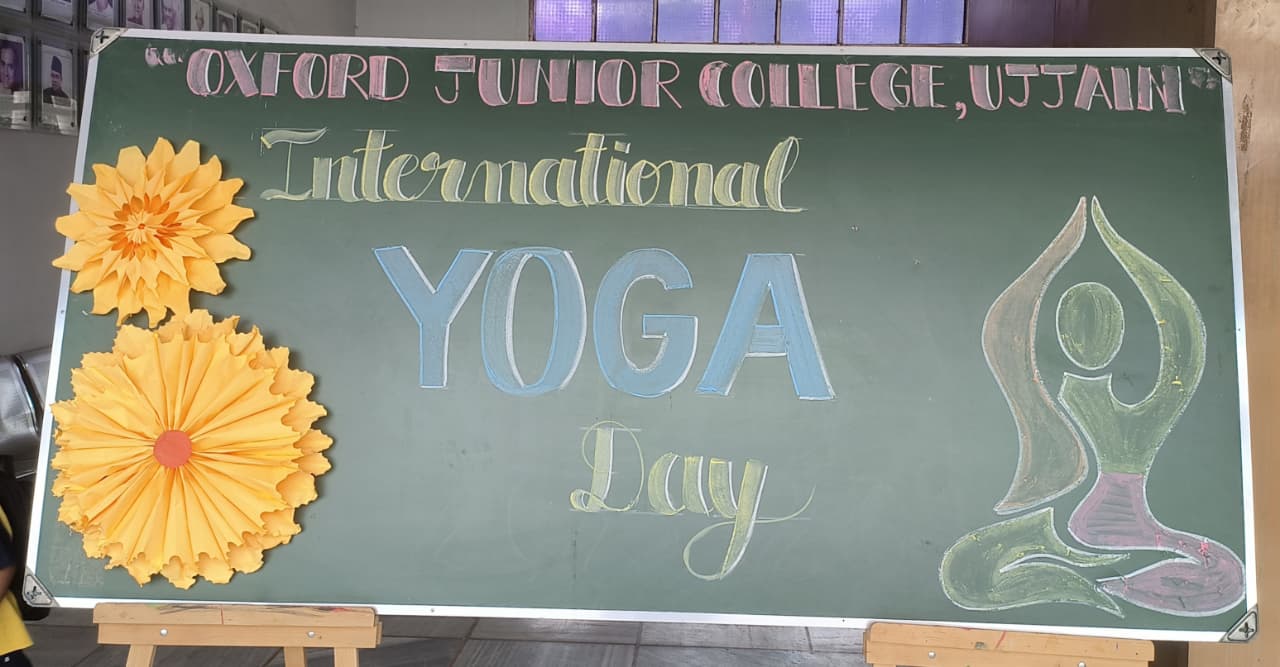 "OXFORD JUNIOR COLLEGE, UJJAIN"
International
YOGA
Day